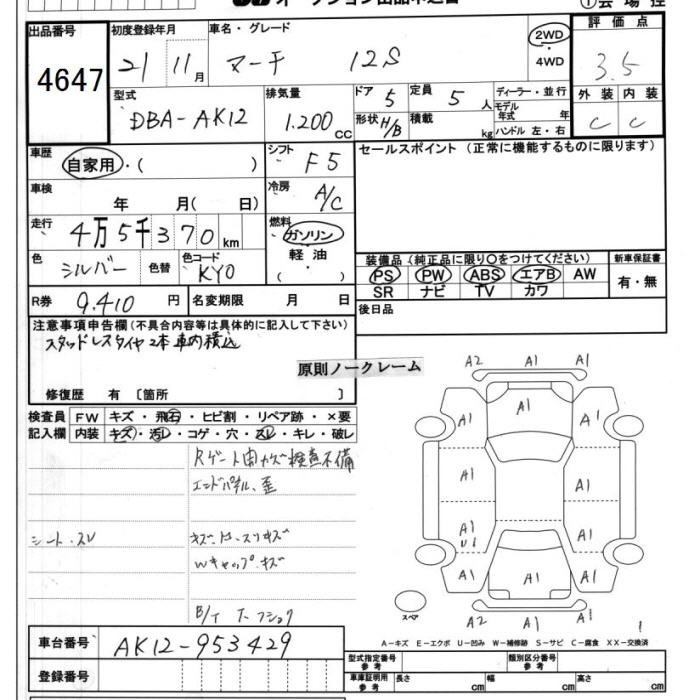 オークション出品申込書
①会場控
出品番号
4647
初度登録年月
21 11月
車名・グレード
マーチ 12S
2WD
・4WD
評価点
3.5
外装 内装
C C
型式
DBA-AK12
排気量
1.200cc
ドア 5
形状 H/B
定員 5人
積載 kg
ディーラー・並行
モデル年式 年
ハンドル 左・右
車歴
自家用・( )
シフト
F5
セールスポイント (正常に機能するものに限ります)
車検
年 月( 日)
冷房
A/C
走行
4万5千370km
燃料
ガソリン
軽油
・( )
色
シルバー
色替
色コード
KY0
装備品(純正品に限り○をつけてください)
新車保証書
PS PW ABS エアB AW
SR ナビ TV カワ
有・無
R券 9.410円
名変期限 月 日
後日品
注意事項申告欄(不具合内容等は具体的に記入して下さい)
スタッドレスタイヤ2本車内積込
原則ノークレーム
修復歴 有〔箇所 〕
検査員記入欄
FW キズ・飛石・ヒビ割・リペア跡・×要
内装 キズ・汚レ・コゲ・穴・スレ・キレ・破レ
Rゲート開カズ検査不備
エンドパネル、歪
シート・スレ
Wキャップ・キズ
車台番号
AK12-953429
登録番号
A2 A1 A1
A1
A1 A1
A1 A1
A1 U1 A1
A1 A1 A1
スペア
A2 A1 A1
1
A-キズ E-エクボ U-凹み W-補修跡 S-サビ C-腐食 XX-交換済
型式指定番号参考
類別区分番号参考
車庫証明用参考
長さ cm
幅 cm
高さ cm